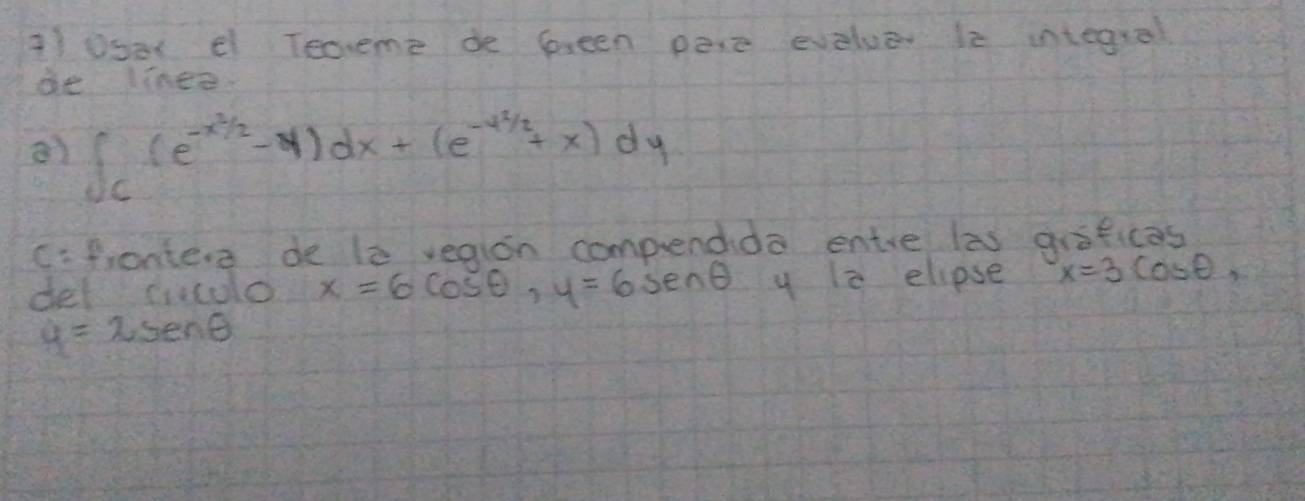 7) Usar el Teorema de Green para evaluar la integral
de linea.
a) ∫_C (e^{-x²/2} - y) dx + (e^{-y²/2} + x) dy
C: frontera de la región comprendida entre las gráficas
del circulo x = 6 cosθ, y = 6 senθ y la elipse x = 3 cosθ,
y = 2 senθ